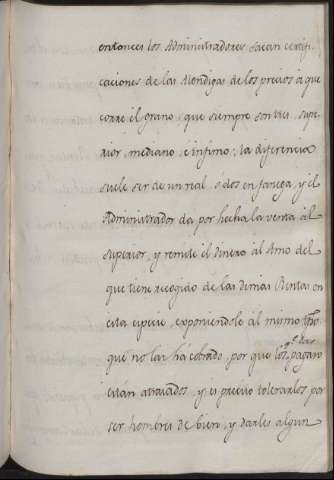 entonces los Administradores sacan certifi-
caciones de las Alondigas de los precios á que
corre el grano, que siempre son tres, supe-
rior, mediano, e infimo; la diferencia
suele ser de un real, ó dos en fanega, y el
Administrador da por hecha la venta al
superior, y remite el dinero al Amo del
que tiene recogido de las dimas Rentas en
esta especie, exponiendole al mismo tpo.
que no las ha cobrado, por que los q.e las pagaro
están atrasados, y es preciso tolerarlos por
ser hombres de bien, y darles algun